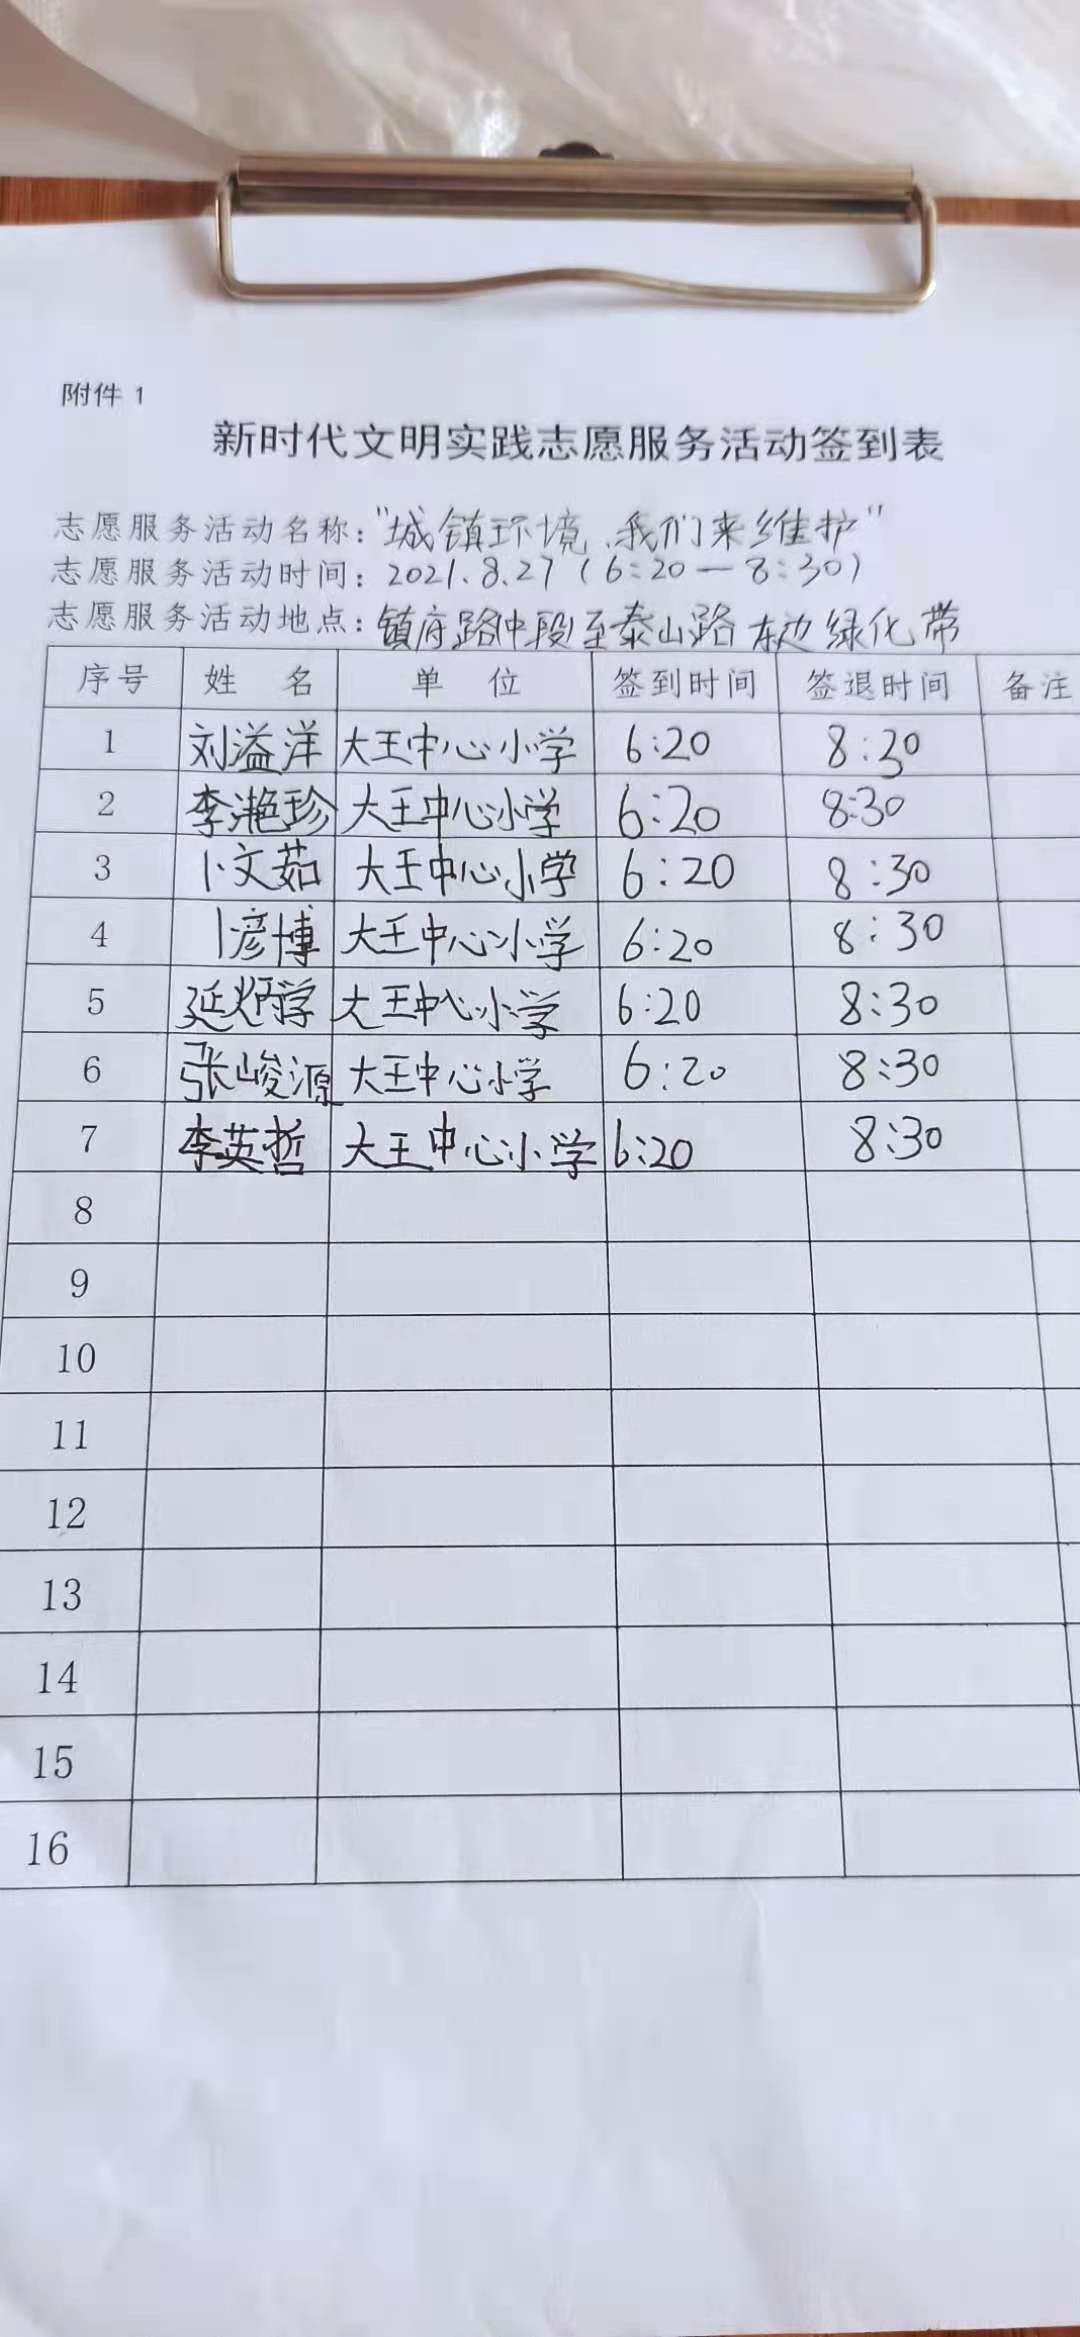 附件 1
新时代文明实践志愿服务活动签到表
志愿服务活动名称："城镇环境、我们来维护"
志愿服务活动时间：2021.8.27（6:20—8:30）
志愿服务活动地点：镇府路中段至泰山路东边绿化带
序号 姓 名 单 位 签到时间 签退时间 备注
1 刘溢洋 大王中心小学 6:20 8:30
2 李滟珍 大王中心小学 6:20 8:30
3 卜文茹 大王中心小学 6:20 8:30
4 卜彦博 大王中心小学 6:20 8:30
5 延炳学 大王中心小学 6:20 8:30
6 张峻源 大王中心小学 6:20 8:30
7 李英哲 大王中心小学 6:20 8:30
8
9
10
11
12
13
14
15
16